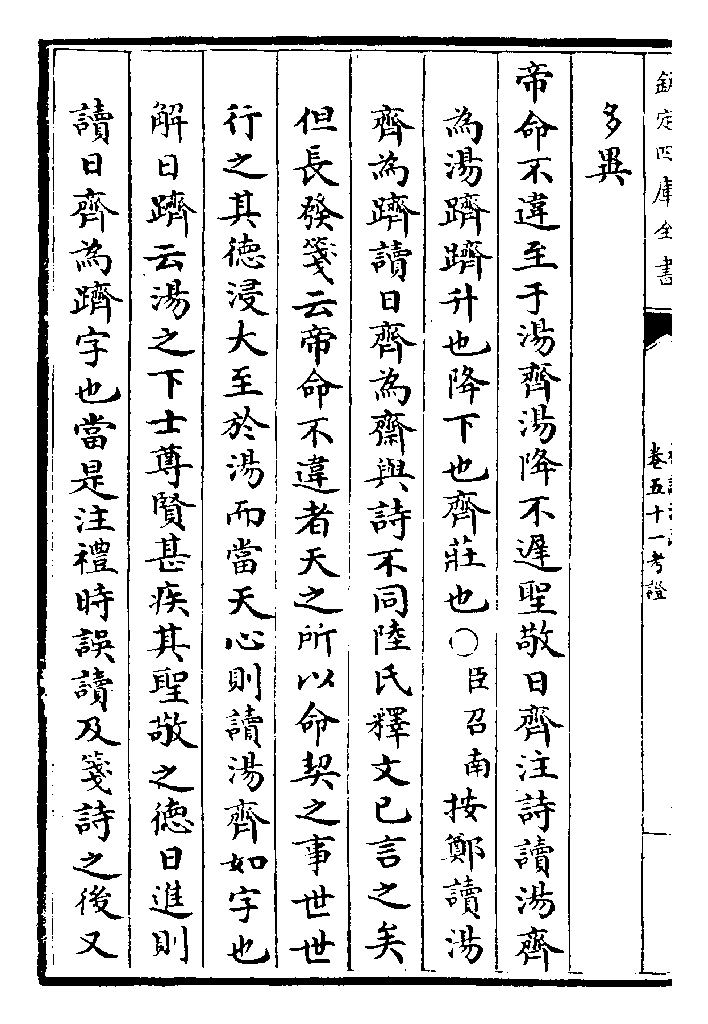 欽定四庫全書
卷五十一考證
多異
帝命不違至于湯齊湯降不遲聖敬日齊注詩讀湯齊
為湯躋躋升也降下也齊莊也〇臣召南按鄭讀湯
齊為躋讀日齊為齋與詩不同陸氏釋文已言之矣
但長發箋云帝命不違者天之所以命契之事世世
行之其徳浸大至於湯而當天心則讀湯齊如字也
解日躋云湯之下士尊賢甚疾其聖敬之徳日進則
讀日齊為躋字也當是注禮時誤讀及箋詩之後又